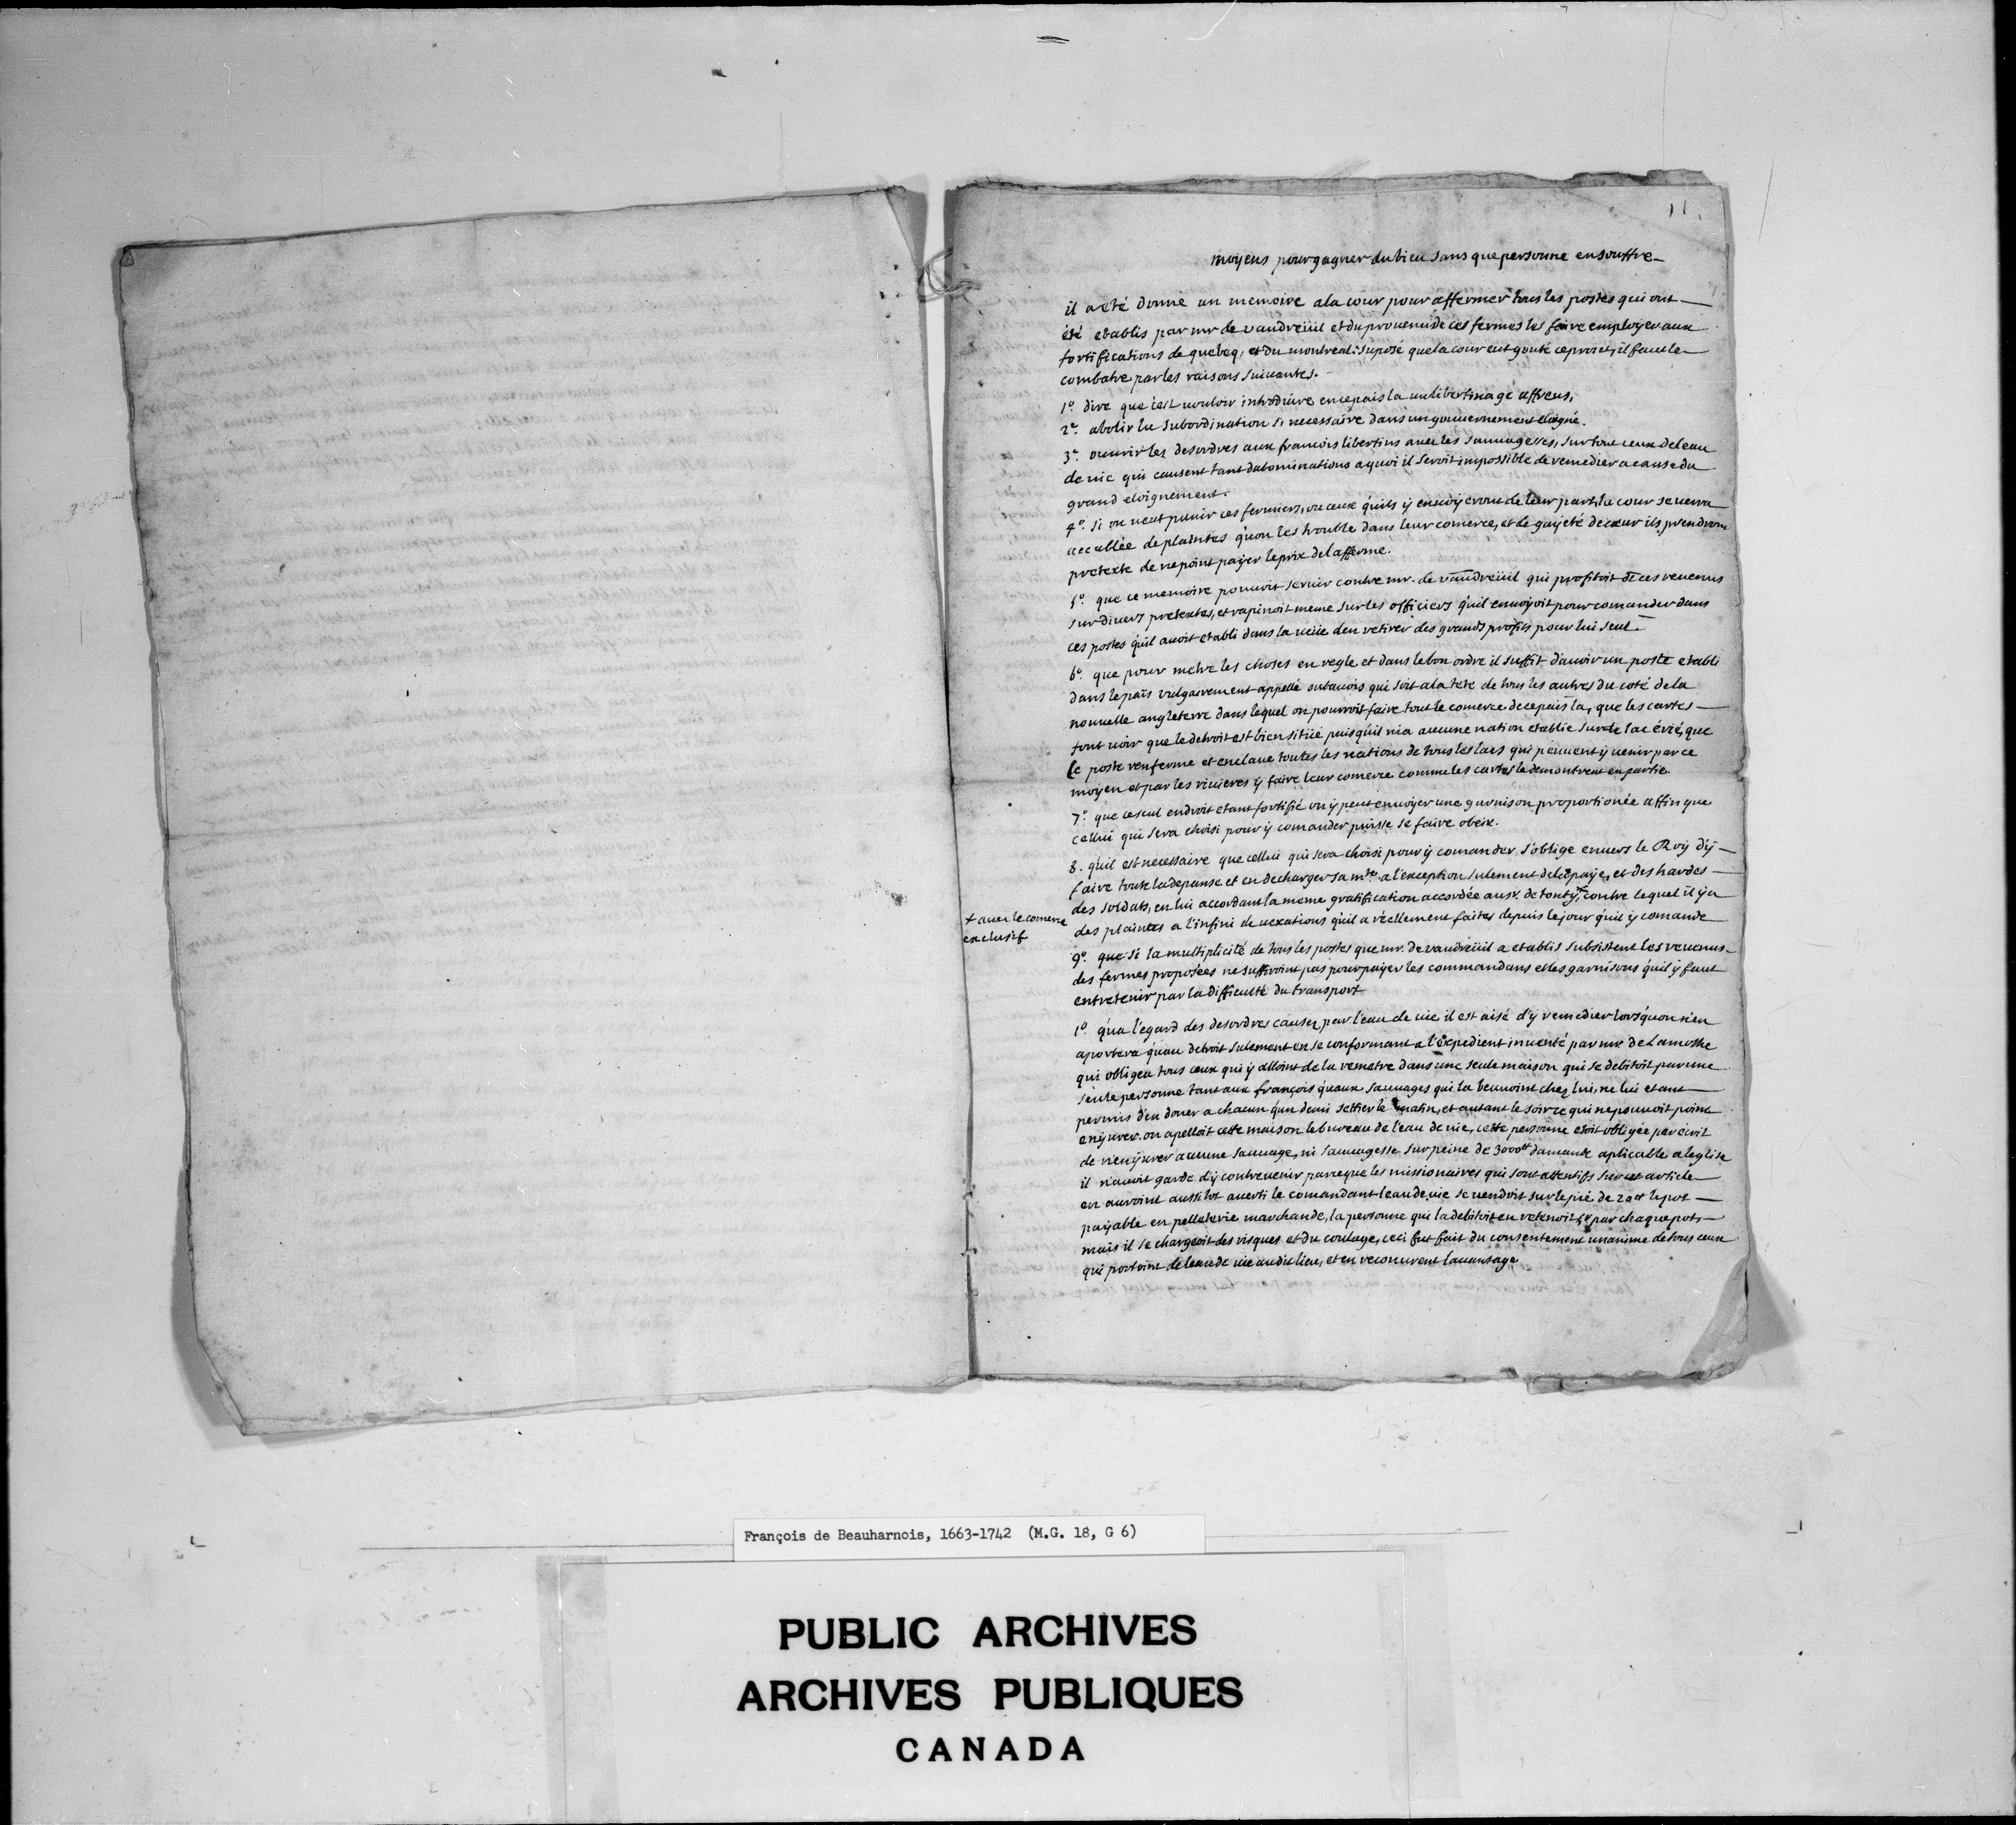 11.
moyens pour gagner du bien sans que personne en souffre
il a eté donné un memoire a la cour pour affermer tous les postes qui ont
été etablis par mr de vaudreüil et du prouenu de ces fermes les faire employer aux
fortifications de quebeq, et du montreal: suposé que la cour eut gouté ce proiet, il faut le
combatre par les raisons suiuantes.
1º. dire que c'est uouloir introduire en ce païs la un libertinage affreus,
2º. abolir la subordination si necessaire dans un gouuernement eloigné.
3º. ouurir les desordres aux francois libertins auec les sauuagesses, sur tout ceux de leau
de uie qui causent tant dabominations a quoi il seroit impossible de remedier a cause du
grand eloignement.
4º. si on ueut punir ces fermiers, ou ceux qu'ils ÿ enuoÿeront de leur part, la cour se uerra
accablée de plaintes qu'on les trouble dans leur comerce, et de gaÿeté de cœur ils prendront
pretexte de ne point paÿer le prix de l'afferme.
5º. que ce memoire pouuoit seruir contre mr. de vaudreüil qui profitoit de ces reuenus
sur diuers pretextes, et rapinoit meme sur les officiers qu'il enuoÿoit pour comander dans
ces postes qu'il auoit etabli dans la ueüe d'en retirer des grands profits pour lui seul.
6º. que pour metre les choses en regle et dans le bon ordre il suffit d'auoir un poste etabli
dans le païs vulgairement appellé outauois qui soit a la tete de tous les autres du coté de la
nouuelle angleterre dans lequel on pourroit faire tout le comerce de ce païs la, que les cartes
font uoir que le detroit est bien sitüé puis qu'il ni a aucune nation etablie sur le lac érié, que
le poste renferme et enclaue toutes les nations de tous les lacs qui peuuent ÿ uenir par ce
moÿen et par les riuieres ÿ faire leur comerce comme les cartes le demontrent en partie.
7º. que ce seul endroit etant fortifié on ÿ peut enuoÿer une garnison proportionée affin que
cellui qui sera choisi pour ÿ comander puisse se faire obeir.
8. qu'il est necessaire que cellui qui sera choisi pour ÿ comander s'oblige enuers le Roÿ d'ÿ
faire toute la depanse et en decharger sa mté a l'exception sulement de la paÿe, et des hardes
des soldats, en lui accordant la meme gratification accordée au sr. de tonty + contre lequel il ÿ a
+ auec le comerce
exclusif
des plaintes a l'infini de uexations qu'il a réellement faites depuis le jour qu'il ÿ comande
9º. que si la multiplicité de tous les postes que mr. de vaudreüil a etablis subsistent les reuenus
des fermes proposées ne suffiroint pas pour paÿer les commandans et les garnisons qu'il ÿ faut
entretenir par la difficulté du transport
1º. qu'a l'egard des desordres causez par l'eau de uie il est aisé d'ÿ remedier lors qu'on n'en
aportera qu'au detroit sulement en se conformant a l'expedient inuenté par mr de Lamothe
qui obligea tous ceux qui ÿ alloint de la remetre dans une seule maison qui se debitoit par une
seule personne tant aux françois qu'aux sauuages qui la beuuoint chez lui, ne lui etant
permis d'en doner a chacun qu'un demi settier le matin, et autant le soir ce qui ne pouuoit point
enÿurer. on apelloit cette maison le bureau de l'eau de uie, cette personne etoit obligée par ecrit
de n'enÿurer aucune sauuage, ni sauuagesse sur peine de 3000tt damande aplicable a leglise
il n'auoit garde d'ÿ contreuenir parceque les missionaires qui sont attentifs sur cet article
en auroint aussitot auerti le comandant leau de uie se uendoit sur le pié de 20tt le pot
païable en pelleterie marchande, la personne qui la debitoit en retenoit par chaque pot,
mais il se chargeoit des risques et du coulage, ceci fut fait du consentement unanime de tous ceux
qui portoint de leau de uie audit lieu, et en reconurent lauantage
François de Beauharnois, 1663-1742 (M.G. 18, G 6)
PUBLIC ARCHIVES
ARCHIVES PUBLIQUES
CANADA